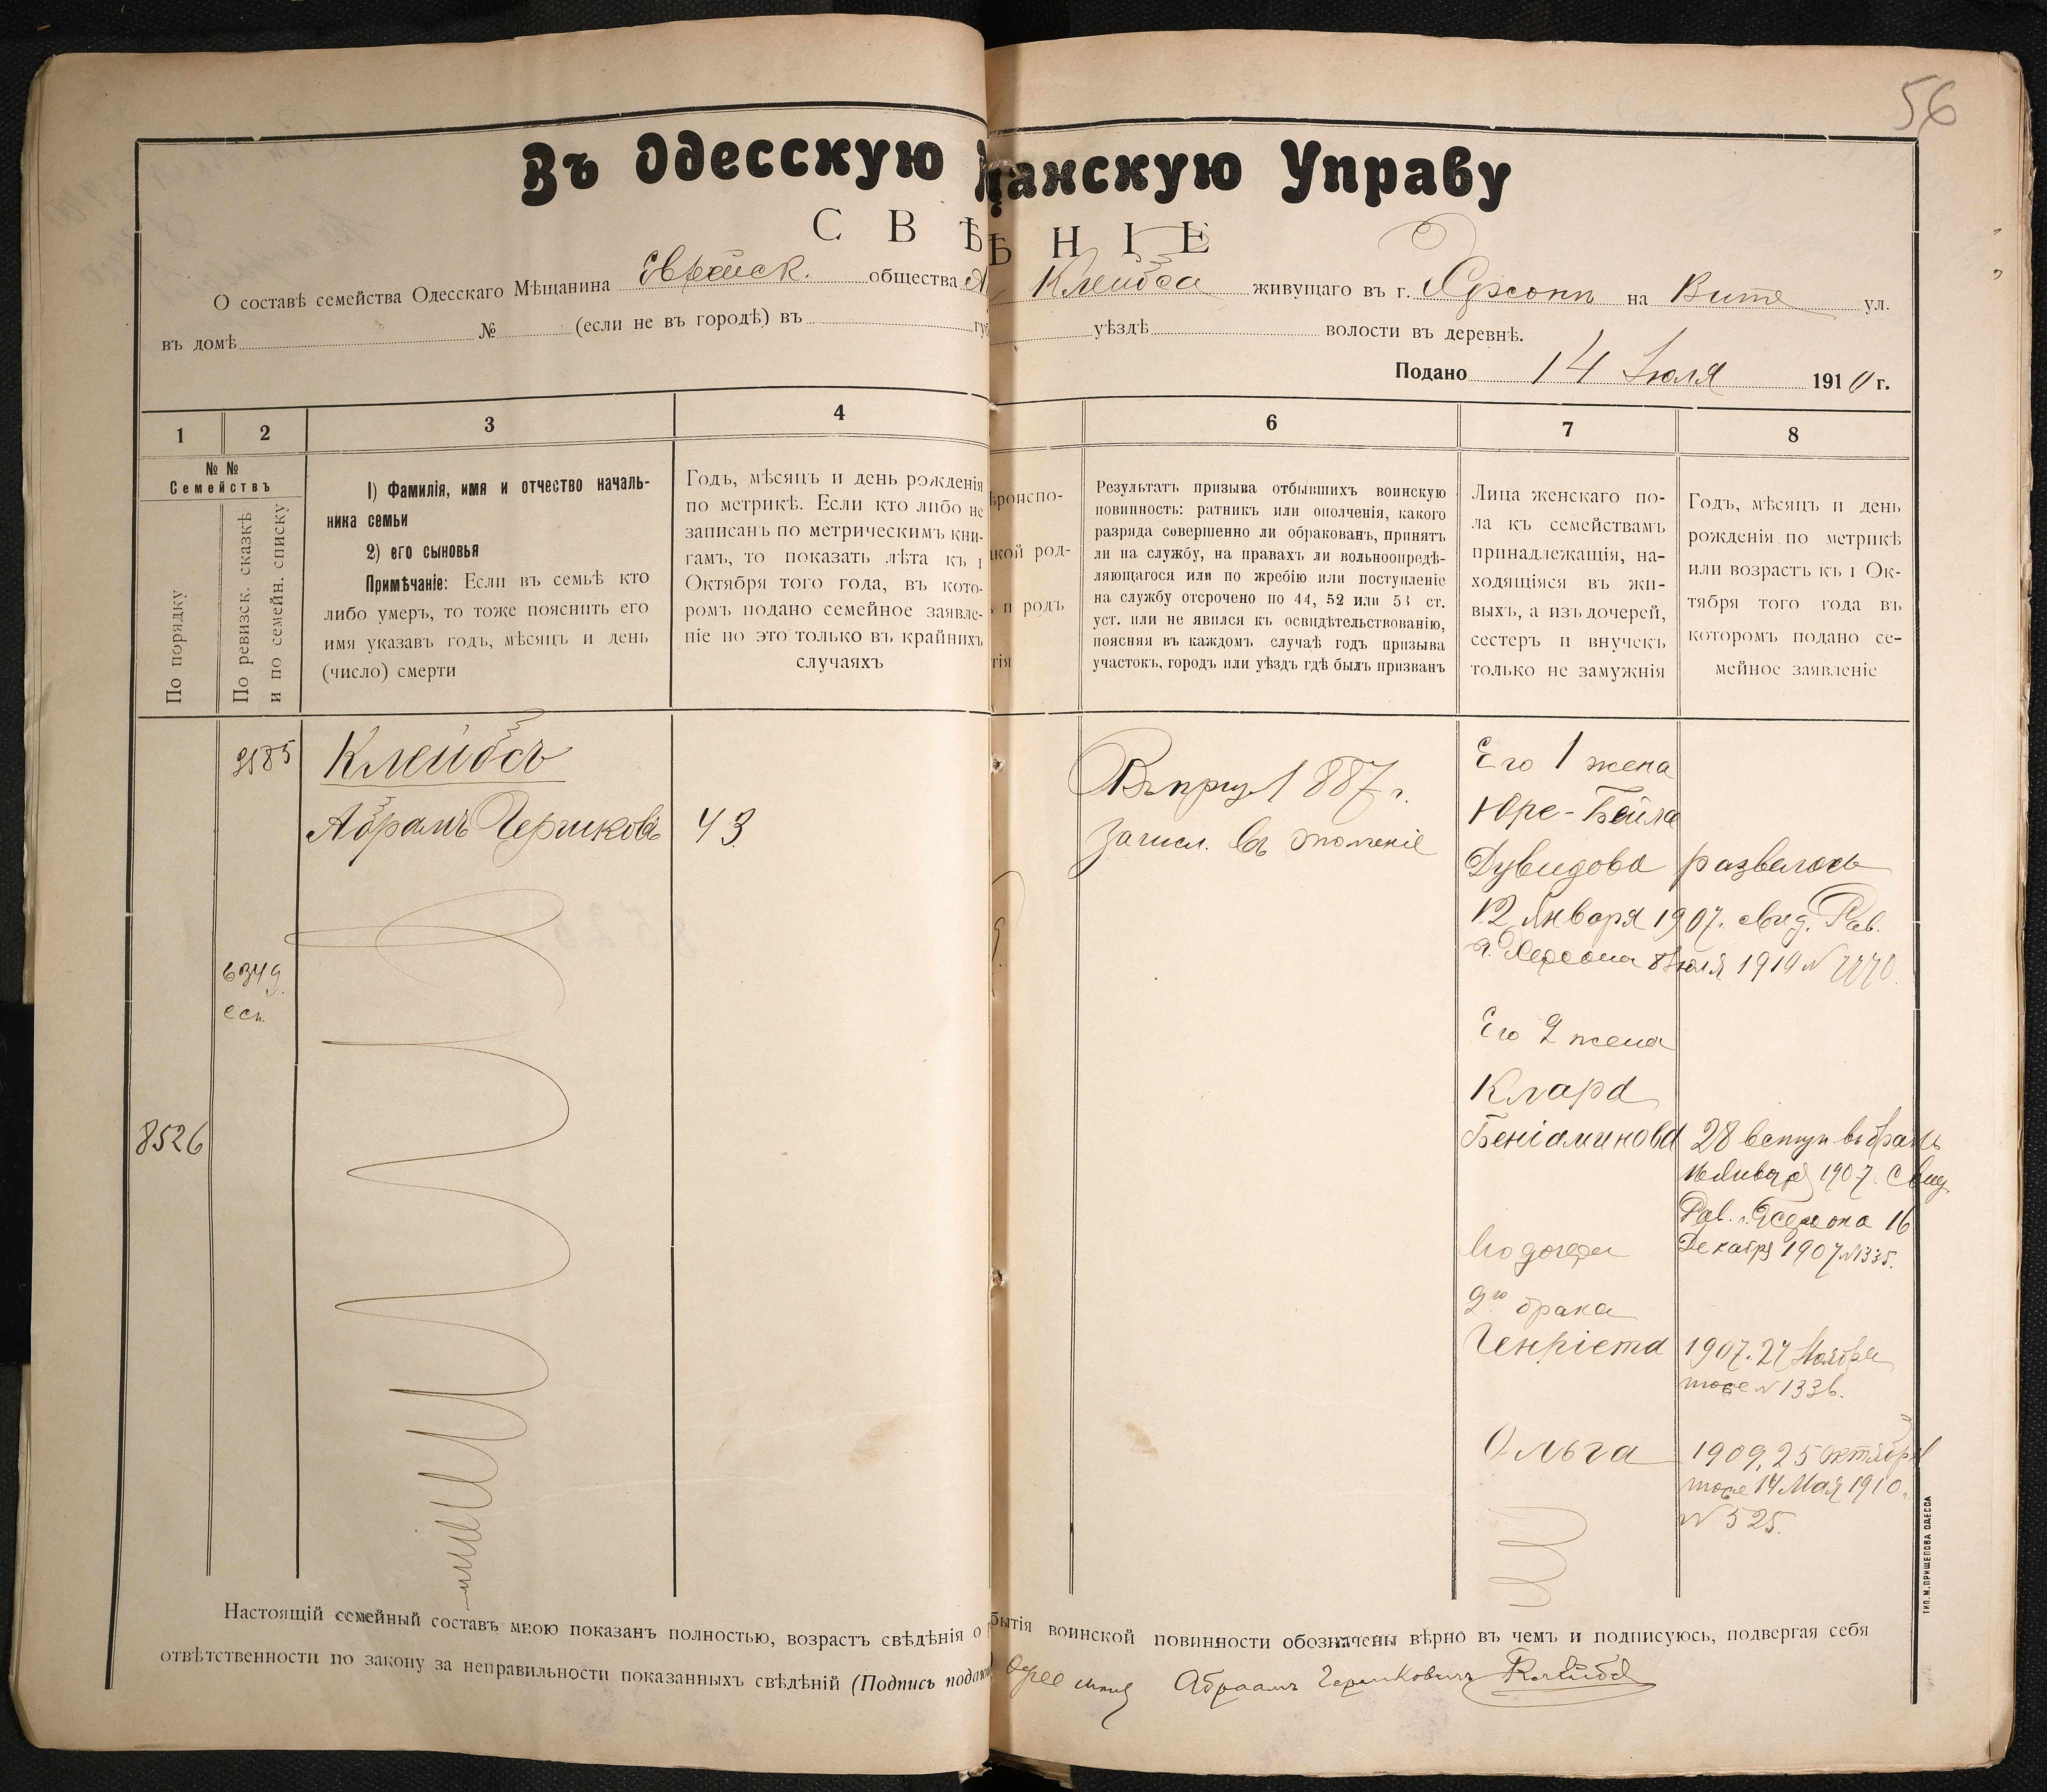 56
Въ Одесскую щанскую Управу
СВѢ ѢНІЕ
О составѣ семейства Одесскаго Мѣщанина Еврейск. общества Клейбса живущаго въ г. Херсонѣ на Витте ул.
въ домѣ № (если не въ городѣ) въ уѣздѣ волости въ деревнѣ.
Подано 14 Іюля 1910 г.
1 2 3 4 6 7 8
№ №
Семействъ
По порядку
По ревизск. сказкѣ
и по семейн. списку
1) Фамилія, имя и отчество началь-
ника семьи
2) его сыновья
Примѣчаніе: Если въ семьѣ кто
либо умеръ, то тоже пояснить его
имя указавъ годъ, мѣсяцъ и день
(число) смерти
Годъ, мѣсяцъ и день рожденія
по метрикѣ. Если кто либо не
записанъ по метрическимъ кни-
гамъ, то показать лѣта къ 1
Октября того года, въ кото-
ромъ подано семейное заявле-
ніе но это только въ крайнихъ
случаяхъ
ѣроиспо-
акой род-
и родъ
тія
Результатъ призыва отбывшихъ воинскую
повинность: ратникъ или ополченія, какого
разряда совершенно ли обракованъ, принятъ
ли на службу, на правахъ ли вольноопредѣ-
ляющагося или по жребію или поступленіе
на службу отсрочено по 44, 52 или 53 ст.
уст. или не явился къ освидѣтельствованію,
поясняя въ каждомъ случаѣ годъ призыва
участокъ, городъ или уѣздъ гдѣ былъ призванъ
Лица женскаго по-
ла къ семействамъ
принадлежащія, на-
ходящіяся въ жи-
выхъ, а изъ дочерей,
сестеръ и внучекъ
только не замужнія
Годъ, мѣсяцъ и день
рожденія по метрикѣ
или возрастъ къ 1 Ок-
тября того года въ
которомъ подано се-
мейное заявленіе
2185
Клейбсъ
Абрамъ Гершковъ
43
6349
есп.
8526
Въ приз 1887 г.
Зачисл. въ ополченіе
Его 1 жена
Юре-Бейла
Дувидова развелось
12 Января 1907. свид. Рав.
г. Херсона 8 Іюля 1910 №
Его 2 жена
Клара
Беніаминова 28 вступ. въ бракъ
Января 1907. Свид
Рав. г. Херсона 16
Декабря 1907 № 1335.
Его дочери
2го брака
Генріета 1907. 27 Ноября
тоже № 1336.
Ольга 1909, 25 Октября
тоже 14 Мая 1910 г.
№ 525.
ТИП. М. ПРИЩЕПОВА ОДЕССА
Настоящій семейный составъ мною показанъ полностью, возрастъ свѣдѣнія о бытія воинской повинности обозначены вѣрно въ чемъ и подписуюсь, подвергая себя
отвѣтственности по закону за неправильности показанныхъ свѣдѣній (Подпись подаю Абраамъ Гершковичъ Клейбс